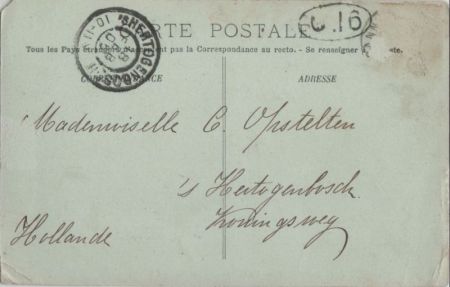 CARTE POSTALE
Tous les Pays étrangers n'acceptent pas la Correspondance au recto. — Se renseigner à la Poste.
'SHERTOGENBOSCH
10-11
C.16
CORRESPONDANCE
ADRESSE
Mademoiselle C. Opstelten
's Hertogenbosch
Koningsweg
Hollande